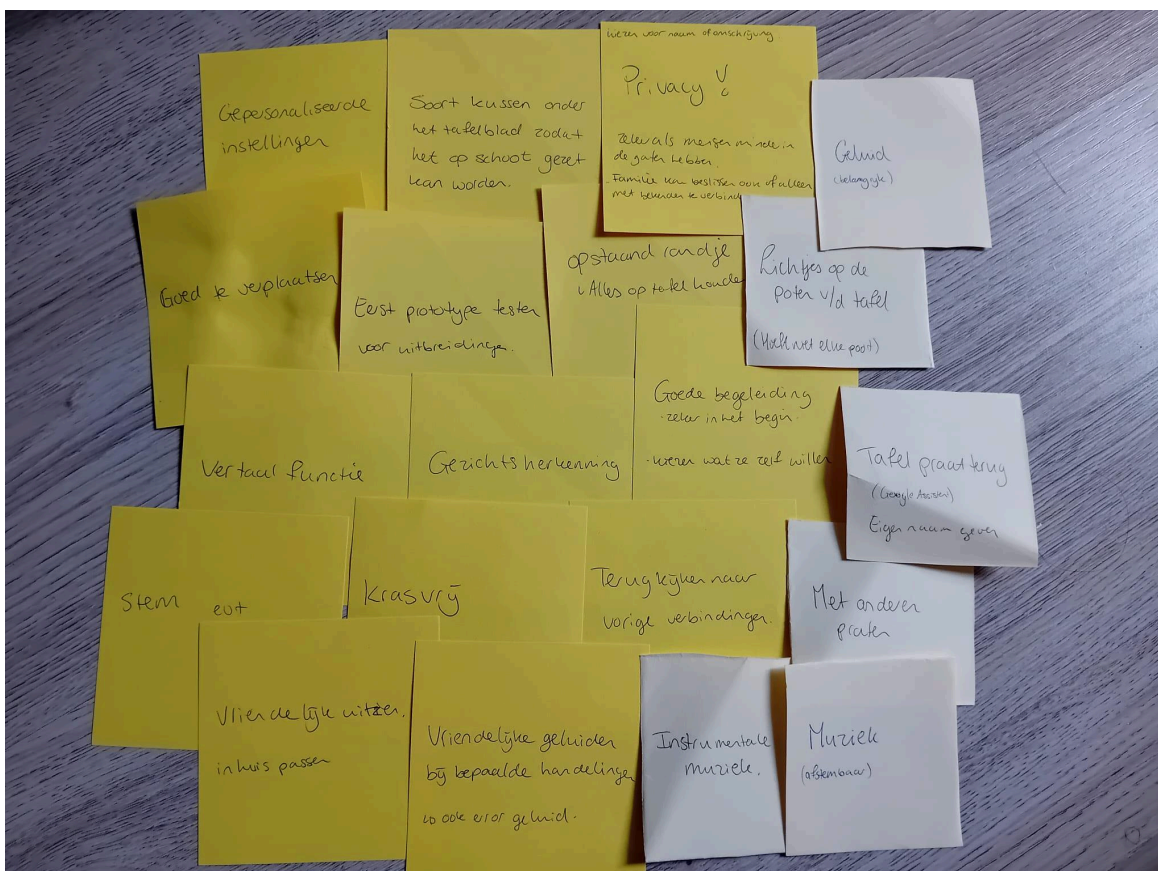 Gepersonaliseerde
instellingen
Soort kussen onder
het tafelblad zodat
het op schoot gezet
kan worden.
kiezen voor naam of omschrijving
Privacy !
zeker als mensen minder in
de gaten hebben.
- Familie kan beslissen om of alleen
met bekenden te verbind
Geluid
(belangrijk)
Goed te verplaatsen
Eerst prototype testen
voor uitbreidingen.
opstaand randje
Alles op tafel houden
Lichtjes op de
poten v/d tafel
(Hoeft niet elke poot)
Vertaal functie
Gezichtsherkenning
Goede begeleiding
- zeker in het begin.
- kiezen wat ze zelf willen
Tafel praat terug
(Google Assistent)
Eigen naam geven
Stem eut
Krasvrij
Terugkijken naar
vorige verbindingen.
Met anderen
praten
Vriendelijk uitzien.
in huis passen
Vriendelijke geluiden
bij bepaalde handelingen
zo ook error geluid.
Instrumentale
muziek.
Muziek
(afstembaar)